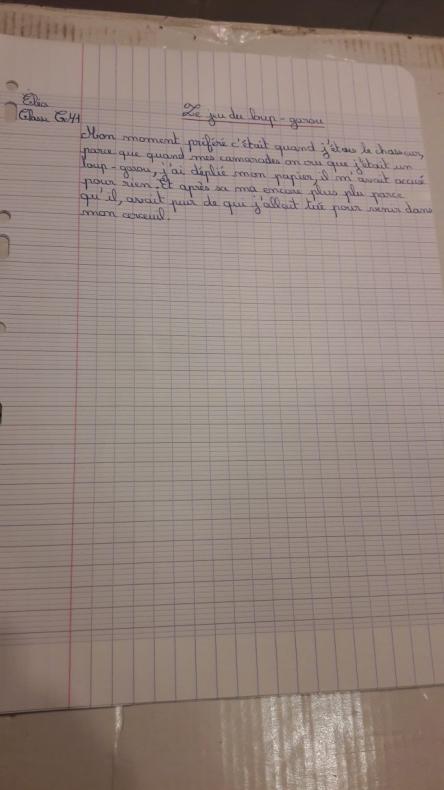 Élia
Le jeu du loup-garou
Classe G41
Mon moment préféré c'était quand j'étais le chasseur,
parce que quand mes camarades on cru que j'était un
loup-garou, j'ai déplié mon papier, il m'avait accusé
pour rien. Et après sa ma encore plus plu parce
qu'il, avait peur de qui j'allait tué pour venir dans
mon cerceuil.